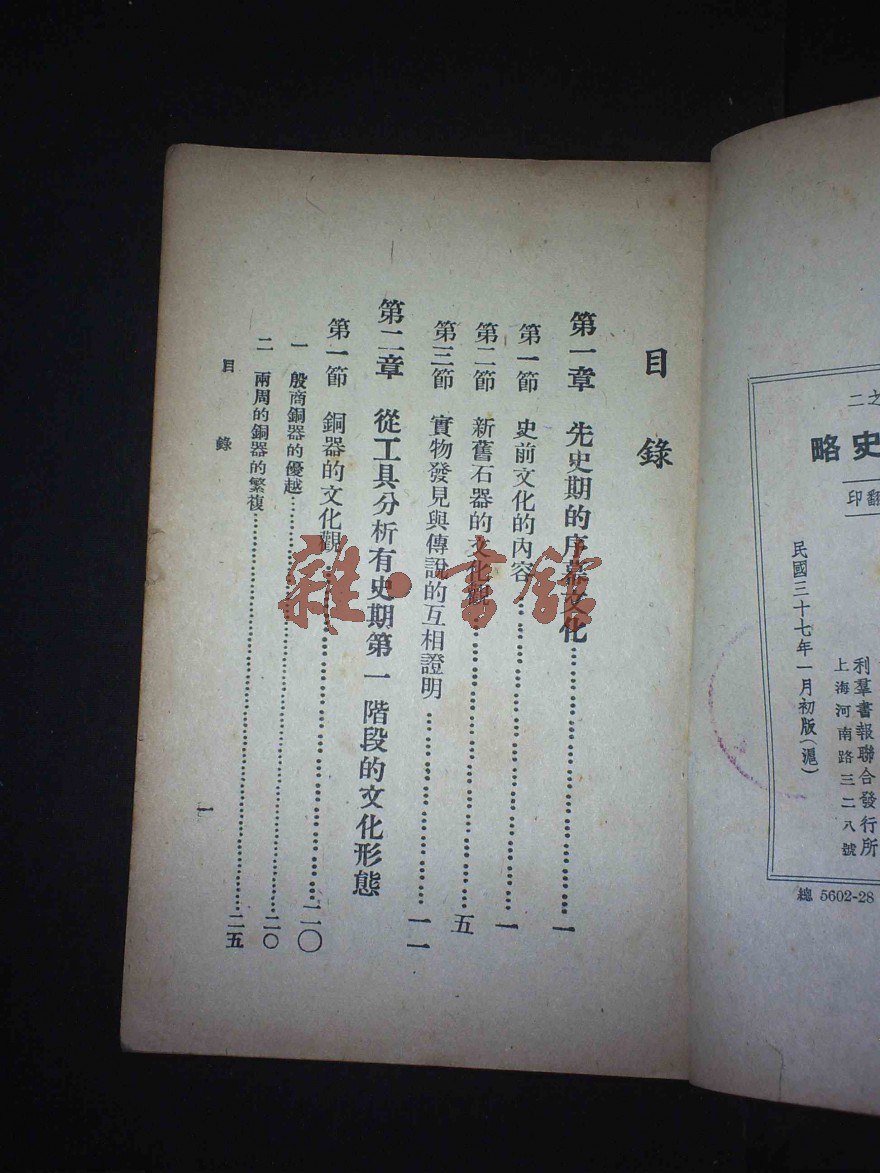 目錄
第一章 先史期的序幕文化……一
第一節 史前文化的內容……一
第二節 新舊石器的文化觀……五
第三節 實物發見與傳說的互相證明……一一
第二章 從工具分析有史期第一階段的文化形態
第一節 銅器的文化觀……二〇
一 殷商銅器的優越……二〇
二 兩周的銅器的繁複……二五
目錄
一
雜·書館
之二
史略
翻印
民國三十七年一月初版(滬)
利羣書報聯合發行所
上海河南路三二八號
總 5602-28